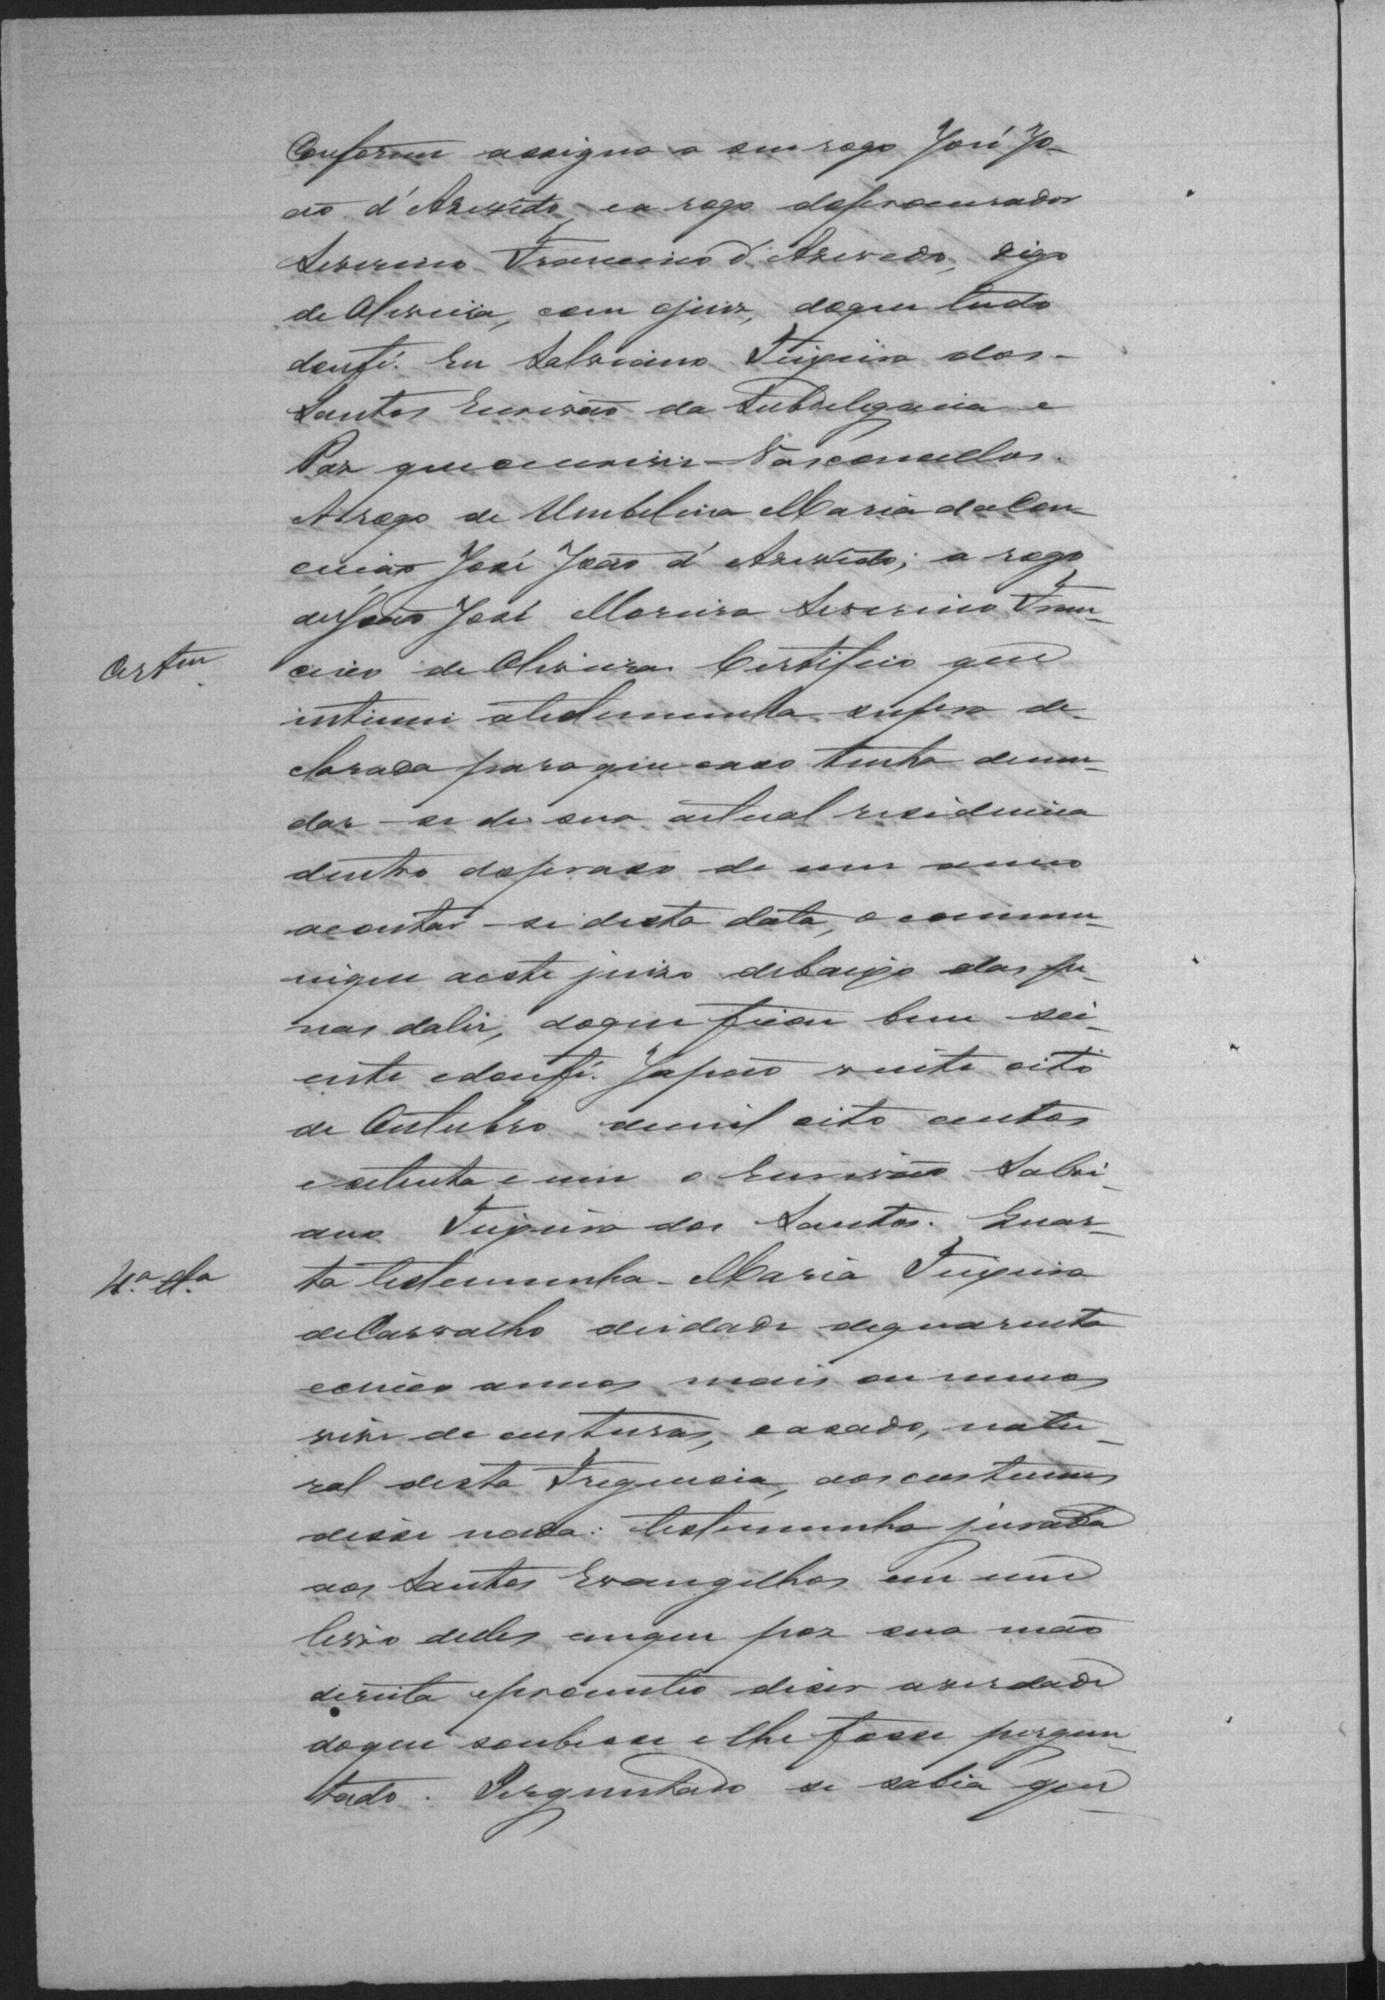 Conforme assigno a seu rogo José Jo-
ão d'Azevedo, e a rogo do procurador
Severino Francisco d'Azevedo, digo
de Oliveira, com o juiz, do que tudo
dou fé. Eu Salviano Teixeira dos-
Santos Escrivão da Subdelegacia e
Paz que escrivi - Vasconcellos.
A rogo de Umbelina Maria da Con-
ceição José João d'Azevedo; a rogo
de João José Moreira Severino Fran-
cisco de Oliveira. Certifico que
intimei a testemunha supra de-
clarada para que caso tenha de mu-
dar-se de sua actual residencia
dentro do praso de um anno
a contar-se desta data, o commu-
nique a este juizo debaixo das pe-
nas da lei, do que ficou bem sci-
ente e dou fé. Japão vinte oito
de Outubro de mil oito centos
e setenta e um o Escrivão Salvi-
ano Teixeira dos Santos. Quar-
4.ª
ta testemunha - Maria Teixeira
de Carvalho de idade de quarenta
e cinco annos mais ou menos
vive de custuras, casado, natu-
ral desta Freguesia, aos custumes
disse nada: testemunha jurada
aos Santos Evangelhos em um
livro delles em que poz sua mão
direita e prometteo diser a verdade
do que soubesse e lhe fosse pergun-
tado. Perguntado se sabia que